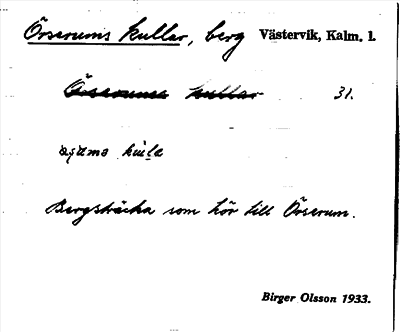 Örserums kullar, berg Västervik, Kalm. l.
Örserums kullar 31.
kula
Bergsträcka som hör till Örserum.
Birger Olsson 1933.